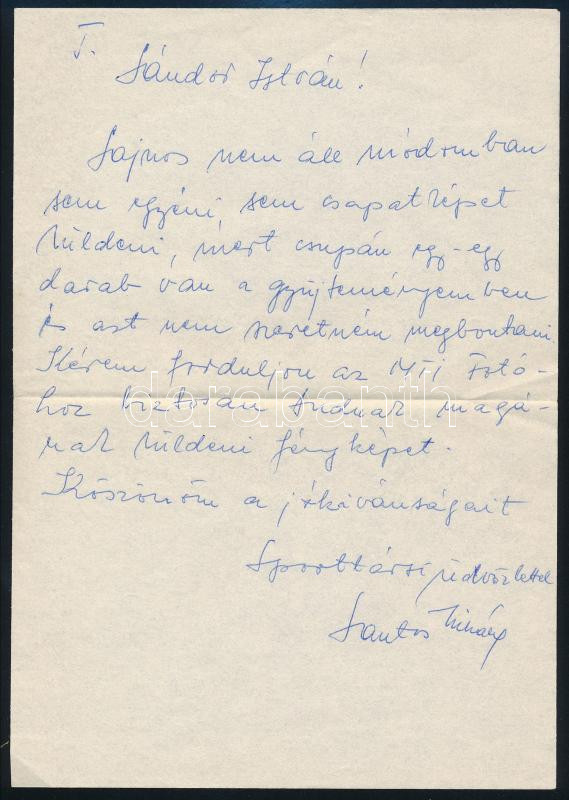 T.
Sándor István!
Sajnos nem áll módomban
sem egyéni, sem csapatképet
küldeni, mert csupán egy-egy
darab van a gyűjteményemben
és azt nem szeretném megbontani.
Kérem forduljon az MTI Fotó-
hoz biztosan tudnak magá-
nak küldeni fényképet.
Köszönöm a jókivánságait
Sporttársi üdvözlettel
Lantos Mihály
darabanth